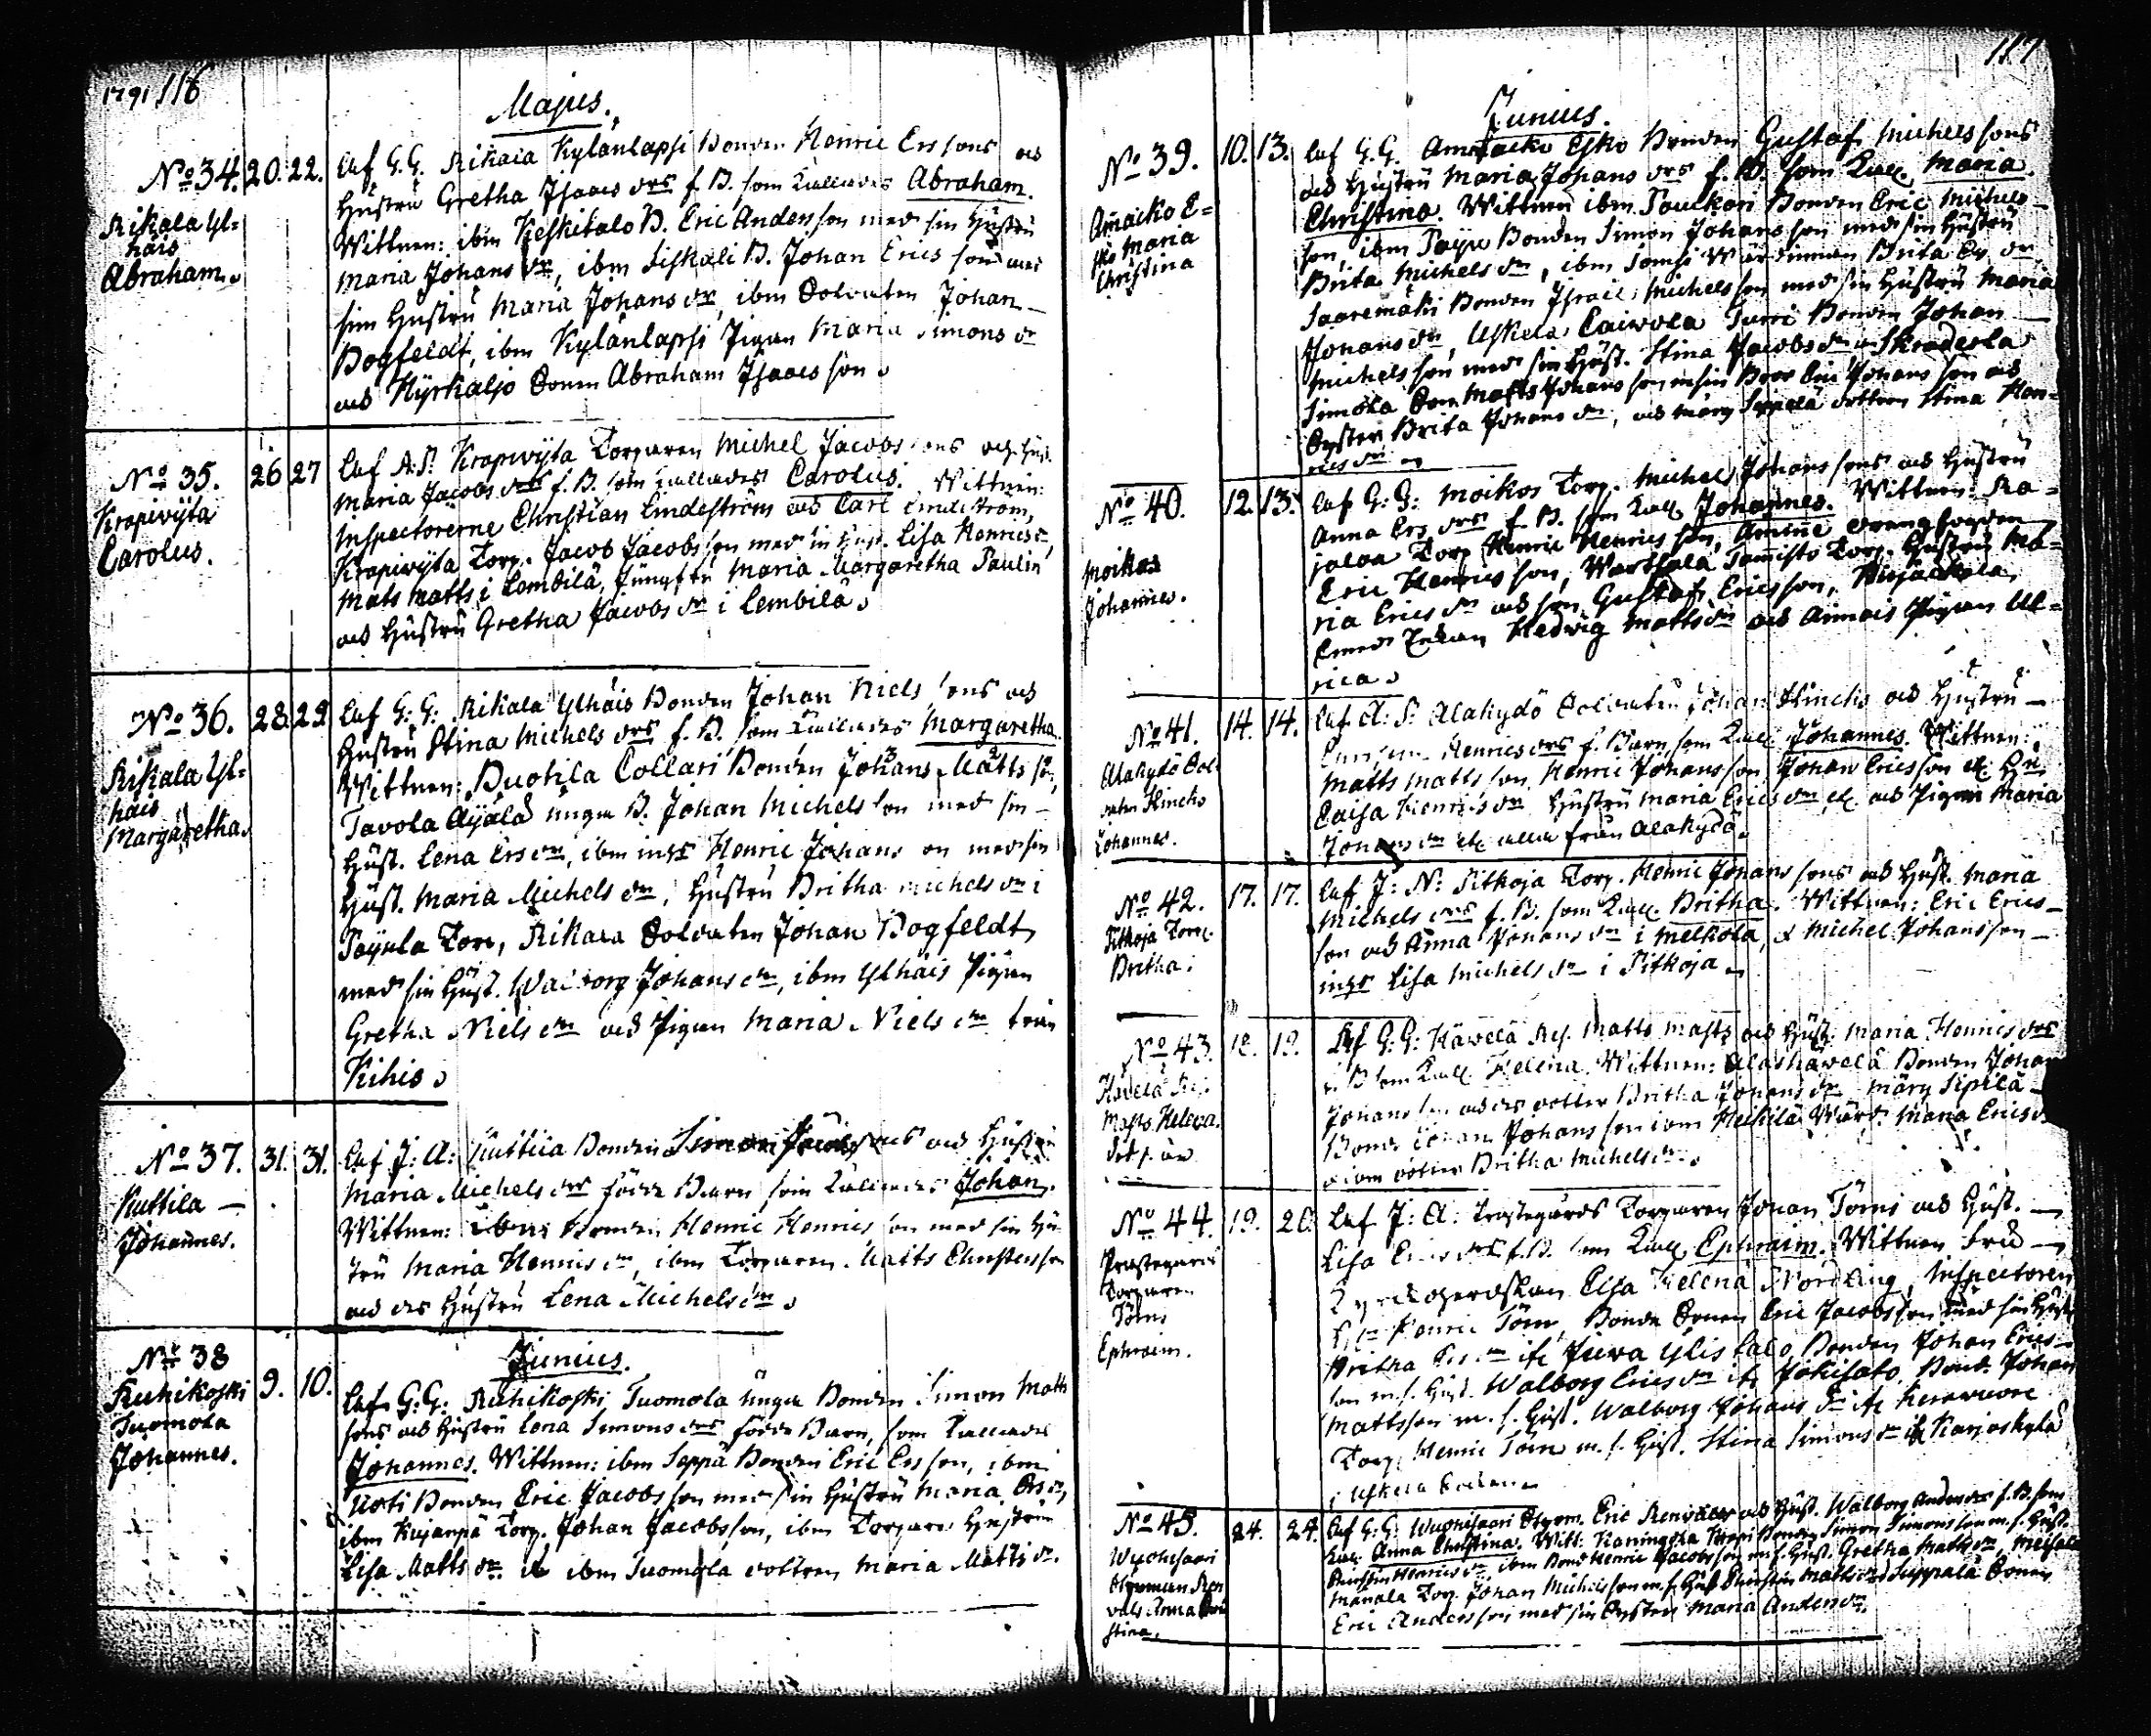 1791 116
Majus.
No 34. 20. 22. Rikala Yl=
häis
Abraham.
af G. G. Rikala Kylänlapsi Bonden Henric Ers sons och
Hustru Gretha Isaacs drs f. B. som kallades Abraham.
Wittnen: ibm Keskitalo B. Eric Anders son med sin Hustru
Maria Johans dr, ibm Siskali B. Johan Erics son med
sin Hustru Maria Johans dr, ibm Soldaten Johan
Bogfeldt, ibm Kylänlapsi Pigan Maria Simons dr
och Hyrkäljo Sonen Abraham Isaacs son.
No 35. 26 27
Kropiwyta
Carolus.
af A. P. Kropiwyta Torparen Michel Jacobs sons och Hust.
Maria Jacobs drs f. B. som kallades Carolus. Wittnen:
Inspectorerne Christian Lindeström och Carl Lindström,
Kropiwyta Torp. Jacob Jacobs son med sin Hust. Lisa Henrics dr,
Mats Matts i Lembilä, Jungfru Maria Margaretha Paulin
och Hustru Gretha Jacobs dr i Lembilä.
No 36. 28. 29
Rikala Yl=
häis
Margaretha.
af G. G. Rikala Ylhäis Bonden Johan Niels sons och
Hustru Stina Michels drs f. B. som kallades Margaretha.
Wittnen: Buotila Collari Bonden Johans Matts son,
Tavola Äyälä unga B. Johan Michels son med sin
Hust. Lena Ers dr, ibm ings Henric Johans son med sin
Hust. Maria Michels dr, Hustru Britha Michels dr i
Päyula Torp, Rikala Soldaten Johan Bogfeldt
med sin Hust. Walborg Johans dr, ibm Ylhäis Pigan
Gretha Niels dr och Pigan Maria Niels dr från
Kihis.
No 37. 31. 31.
Kuttila
Johannes.
af J. A. Kuttila Bonden Simon Jacobs sons och Hustru
Maria Michels drs födde Barn som kallades Johan.
Wittnen: Bonden Henric Henrics son med sin Hu
stru Maria Henrics dr, ibm Torparen Matts Christersson
och des Hustru Lena Michels dr.
Junius.
No 38 9. 10.
Kuhikoski
Tuomola
Johannes.
af G. G. Kuhikoski Tuomola unga Bonden Simon Matts
sons och Hustru Lena Simons drs födde Barn, som kallades
Johannes. Wittnen: ibm Seppä Bonden Eric Ers son, ibm
Uoti Bonden Eric Jacobs son med sin Hustru Maria Ers dr,
ibm Kujanpä Torp. Johan Jacobsson, ibm Torpare Hustrun
Lisa Matts dr & ibm Tuomola dottren Maria Matts dr.
117
Junius.
No 39. 10. 13.
Amacko E=
sko Maria
Christina
af G. G. Amacko Esko Bonden Gustaf Michels sons
och Hustru Maria Johans drs f. B. som kall. Maria
Christina. Wittnen ibm Pauckari Bonden Eric Michels
son, ibm Bonden Simon Johans son med sin Hustru
Brita Michels dr, ibm Wärdinnan Brita Ers dr
Saaremäki Bonden Israel Michels son med sin Hustru Maria
Johans dr, Uskela Caiwola Turri Bonden Johan
Michels son med sin Hust. Stina Jacobs dr, Skradesla
Simola Matts Johans son Bror Eric Johans son och
Syster Brita Johans dr, och Seppelä dottren Stina Hen=
rics dr
No 40. 12. 13.
Moikos
Johannes.
af G. G. Moikos Torp. Michel Johans sons och Hustru
Anna Ers drs f. B. som kall. Johannes. Wittnen: Ra=
jaloa Torp Henric Henrics son, drang
Eric Henrics son, Wartsala Tamisto Torp. Hustru Ma=
ria Erics dr och son Gustaf Ericsson,
Hedwig Matts dr och Pigan Ul=
rica.
No 41. 14. 14.
Alakydö Sol-
daten Klincks
Johannes.
af A. P. Alakydö Soldaten Johan Klincks och Hustru
Henrics drs f. Barn som kall. Johannes. Wittnen:
Matts Matts son, Henric Johans son, Johan Erics son &
Caisa Henrics dr Hustru Maria Erics dr & och Pigan Maria
Johans dr alla från Alakydö.
No 42. 17. 17.
Pitkoja Torp
Britha.
af J. N. Pitkoja Torp. Henric Johans sons och Hust. Maria
Michels drs f. B. som kall. Britha. Wittnen: Eric Erics
son och Anna Johans dr i Melkola, & Michel Johansson
ings Lisa Michels dr i Pitkoja
No 43. 18. 19.
Häwelä
Matts Helena.
af G. G. Häwelä Matts Matts och Hust. Maria Henrics drs
f. B. som kall. Helena. Wittnen: Alashäwelä Bonden Johan
Johans son och des dotter Britha Johans dr Sipilä
Bond. Johan Johans son Heikilä Wärd. Maria Erics dr
& ibm dotter Britha Michels dr.
No 44. 19. 20.
Prästegårds
Torparen
Törns
Ephraim.
af J. A. Prästegårds Torparen Johan Törns och Hust.
Lisa Erics drs f. B. som kall. Ephraim. Wittnen Fru
Elsa Helena Nordling, Inspectoren
Henric Törn, Bonde Sonen Eric Jacobs son med sin Hustru
Britha Ers dr, Juva Ylis talo Bonden Johan Erics
son m. s. Hust. Walborg Erics dr, Jokisalo Bond. Johan
Mattsson m. s. Hust. Walborg Johans dr,
Torp. Henric Törn m. s. Hust. Stina Simons dr Karjaskylä
i Uskela
No 45. 24. 24.
Wuohisaari
Anna Chri
stina.
af G. G. Wuohisaari Eric Renwals och Hust. Walborg Anders drs f. B. som
kall. Anna Christina. Witt: Bonden Simon Simons son m. s. Hust.
Henrics dr, ibm Bond Henric Jacobs son m. s. Hust. Gretha Matts dr,
Torp. Johan Michels son m. s. Hust. Matts dr, Suppala Sonen
Eric Anders son med sin Syster Maria Anders dr.